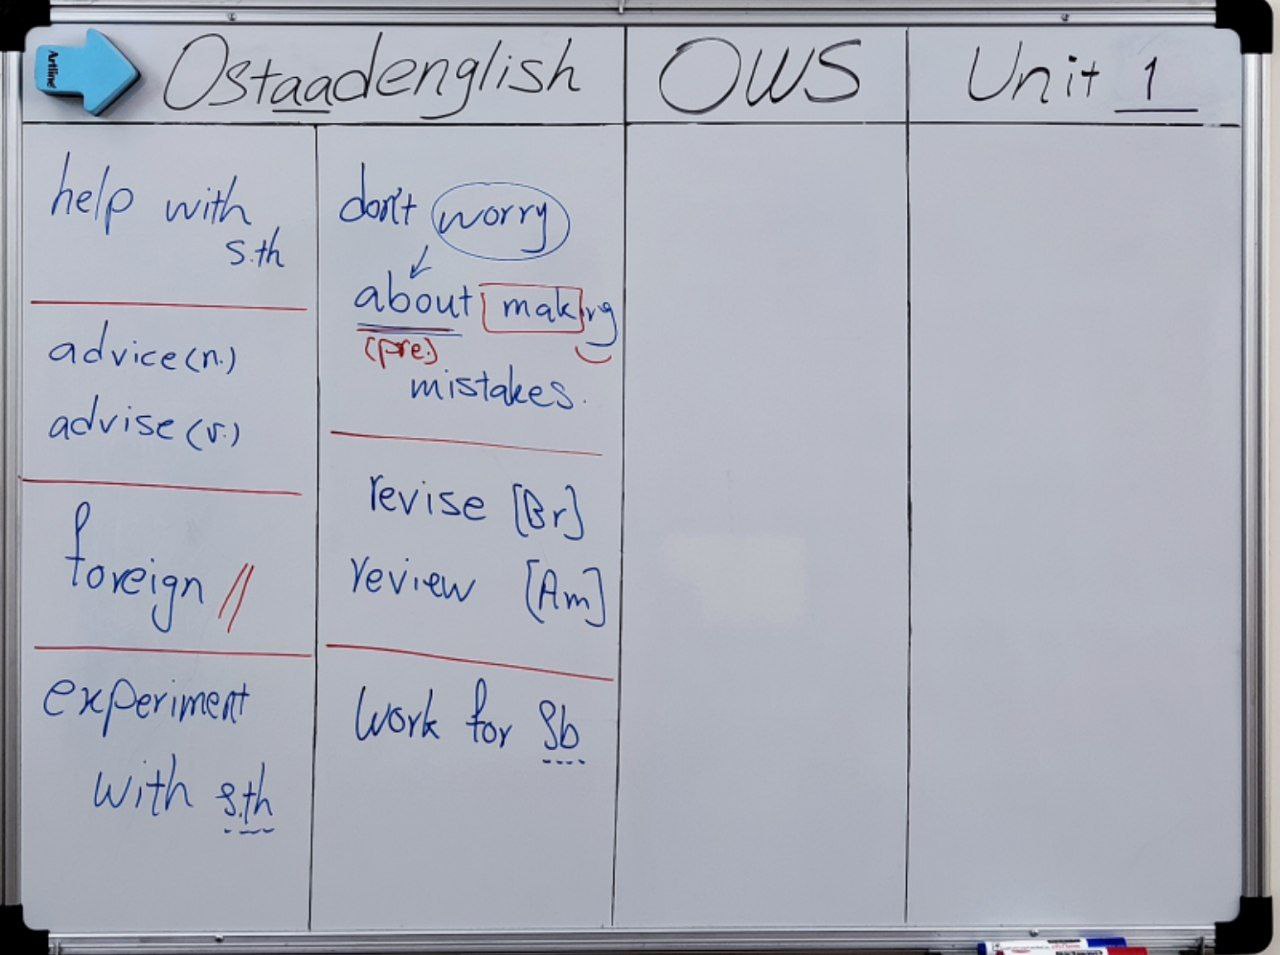 Artline
Ostaadenglish
OWS
Unit 1
help with
s.th
advice (n.)
advise (v.)
foreign //
experiment
with s.th
don't worry
about making
(pre.)
mistakes.
revise [Br]
review [Am]
work for Sb